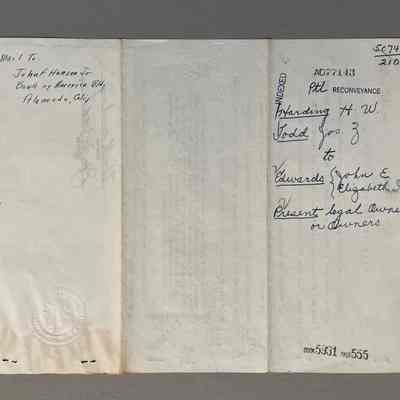 Mail To
John F Hansen Jr
Bank of America Bldg
Alameda, Calif
5C74
210
AD77143
INDEXED
Ptl RECONVEYANCE
Harding H. W.
Todd Jos Z
to
Edwards { John E
Elizabeth
Present legal Owner
or Owners
BOOK 5931 PAGE 555